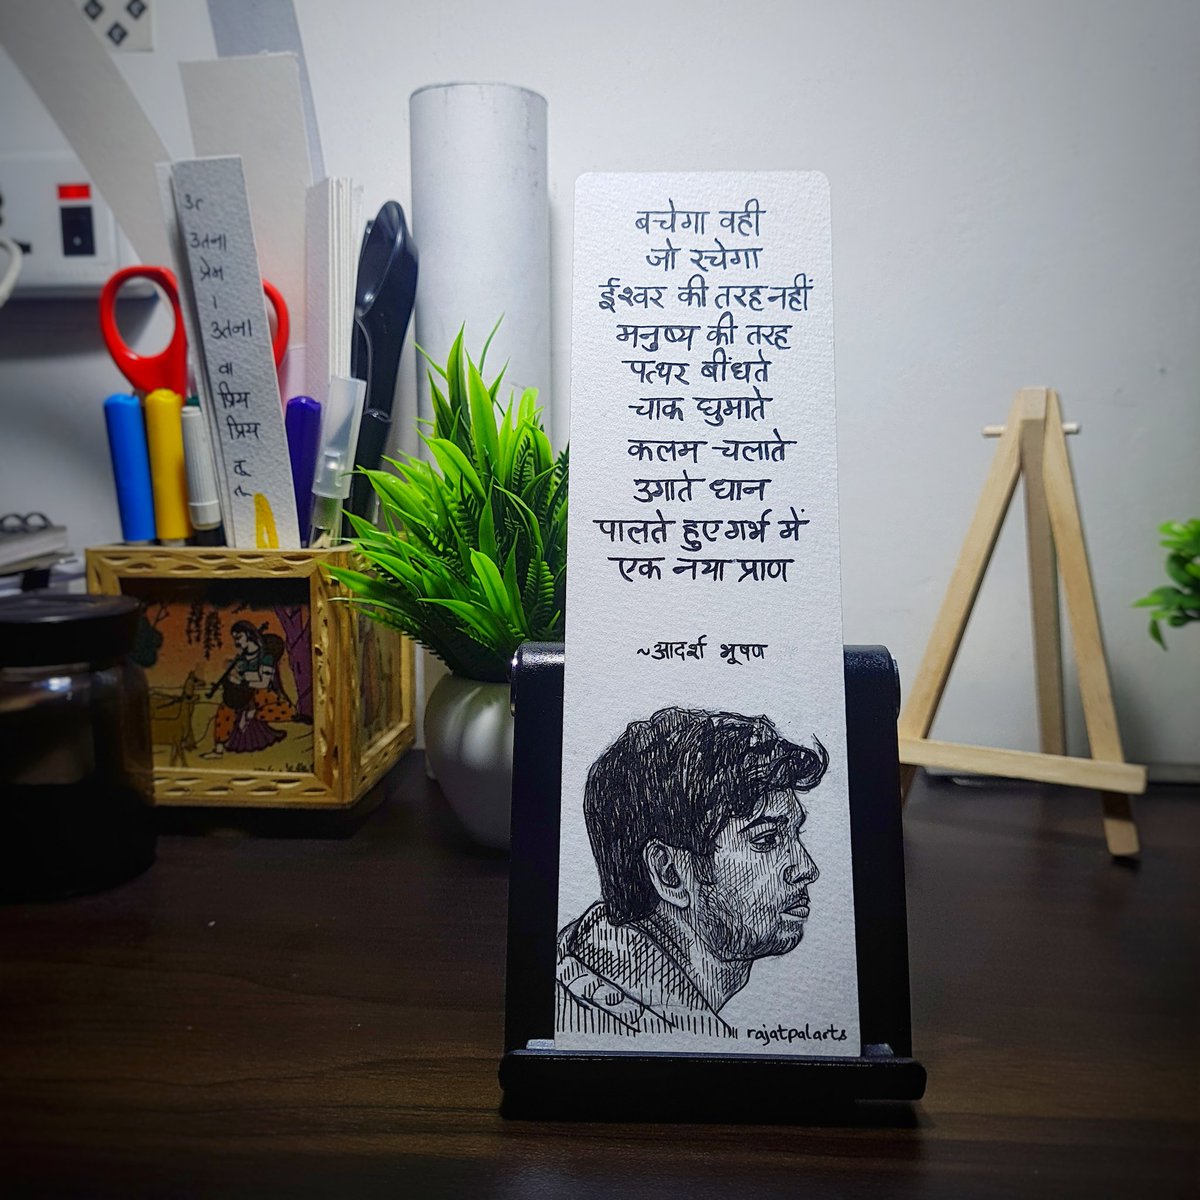 बचेगा वही
जो रचेगा
ईश्वर की तरह नहीं
मनुष्य की तरह
पत्थर बींधते
चाक घुमाते
कलम चलाते
उगाते धान
पालते हुए गर्भ में
एक नया प्राण
~आदर्श भूषण
rajatpalarts
उतना
प्रेम
।
उतना
प्रिय
प्रिय